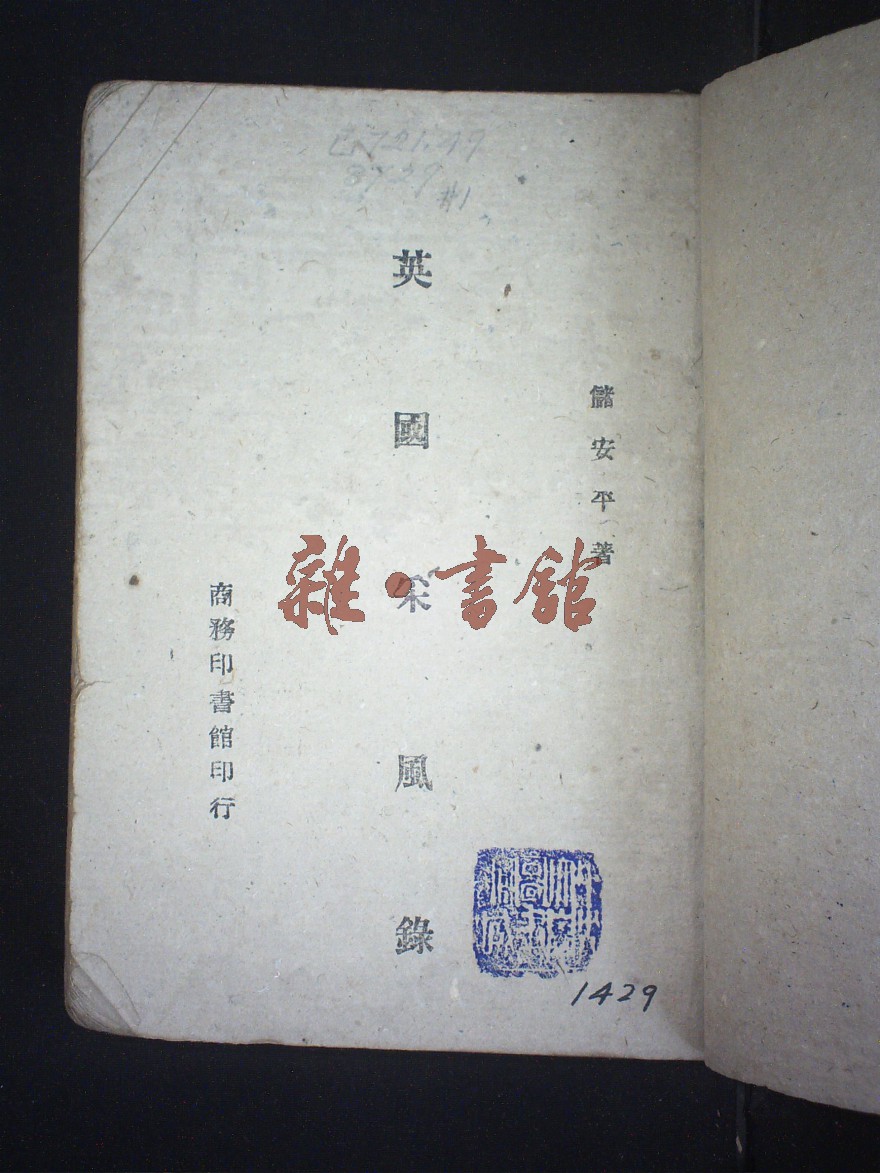 721.49
8729
#1
儲安平著
英國采風錄
商務印書館印行
雜·書館
1429